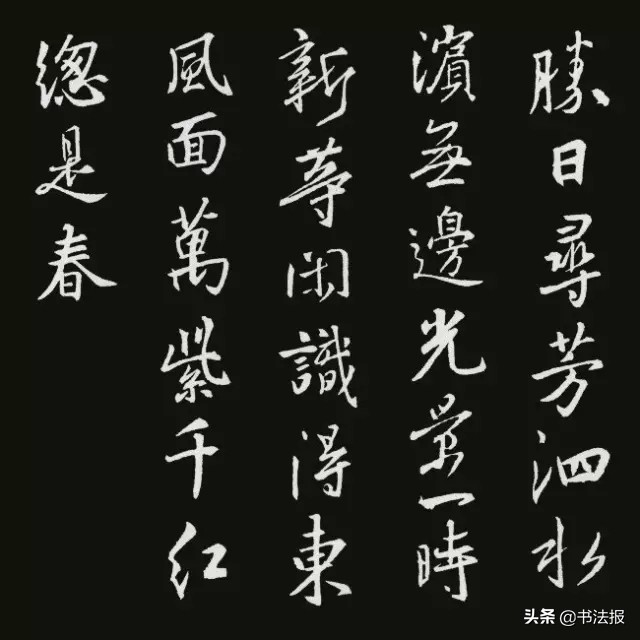 勝日尋芳泗水
濱無邊光景一時
新等閑識得東
風面萬紫千红
總是春
头条 @书法报